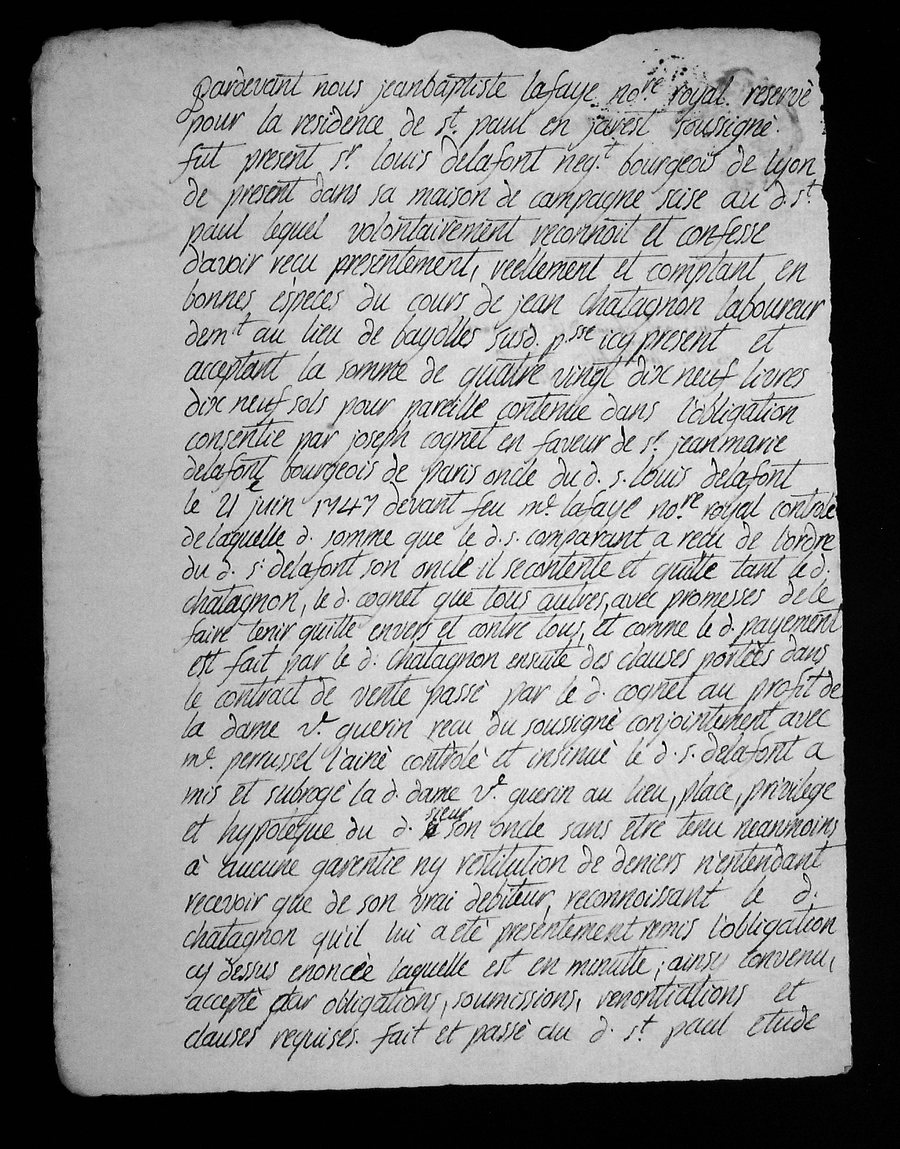 pardevant nous jeanbaptiste lafaye no.re royal. reservé
pour la residence de st. paul en jarest soussigné.
fut present sr. louis delafont neg.t bourgeois de lyon
de present dans sa maison de campagne scise au d. st.
paul lequel volontairement reconnoit et confesse
d'avoir recu presentement, reellement et comptant en
bonnes espéces du cours de jean chatagnon laboureur
demt au lieu de bayolles susd. psse icy present et
acceptant la somme de quatre vingt dix neuf livres
dix neuf sols pour pareille contenue dans l'obligation
consentie par joseph cognet en faveur de sr. jean marie
delafont bourgeois de paris oncle du d. s. louis delafont
le 21e juin 1747 devant feu me. lafaye no.re royal controlé
de laquelle d. somme que le d. s. comparant a recu de l'ordre
du d. s. delafont son oncle il se contente et quitte tant le d.
chatagnon, le d. cognet que tous autres, avec promesses de le
faire tenir quitte envers et contre tous, et comme le d. payement
est fait par le d. chatagnon ensuite des clauses portées dans
le contract de vente passé par le d. cognet au profit de
la dame ve. guerin recu du soussigné conjointement avec
me. perrussel l'ainé controlé et insinué le d. s. delafont a
mis et subrogé la d. dame ve. guerin au lieu, place, privilege
et hypotéque du d. sieur son oncle sans etre tenu neanmoins
à aucune garentie ny restitution de deniers n'entendant
recevoir que de son vrai debiteur, reconnoissant le d.
chatagnon qu'il lui a eté presentement remis l'obligation
cy dessus enoncée laquelle est en minutte; ainsy convenu,
accepté par obligations, soumissions, renontiations et
clauses requises. fait et passé au d. st. paul etude